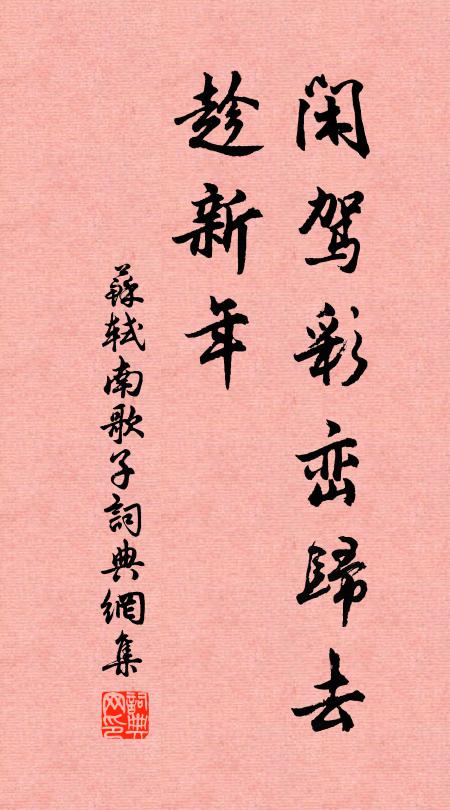 闲驾彩峦歸去
趁新年
蘇軾南歌子詞典網集
詞典网印